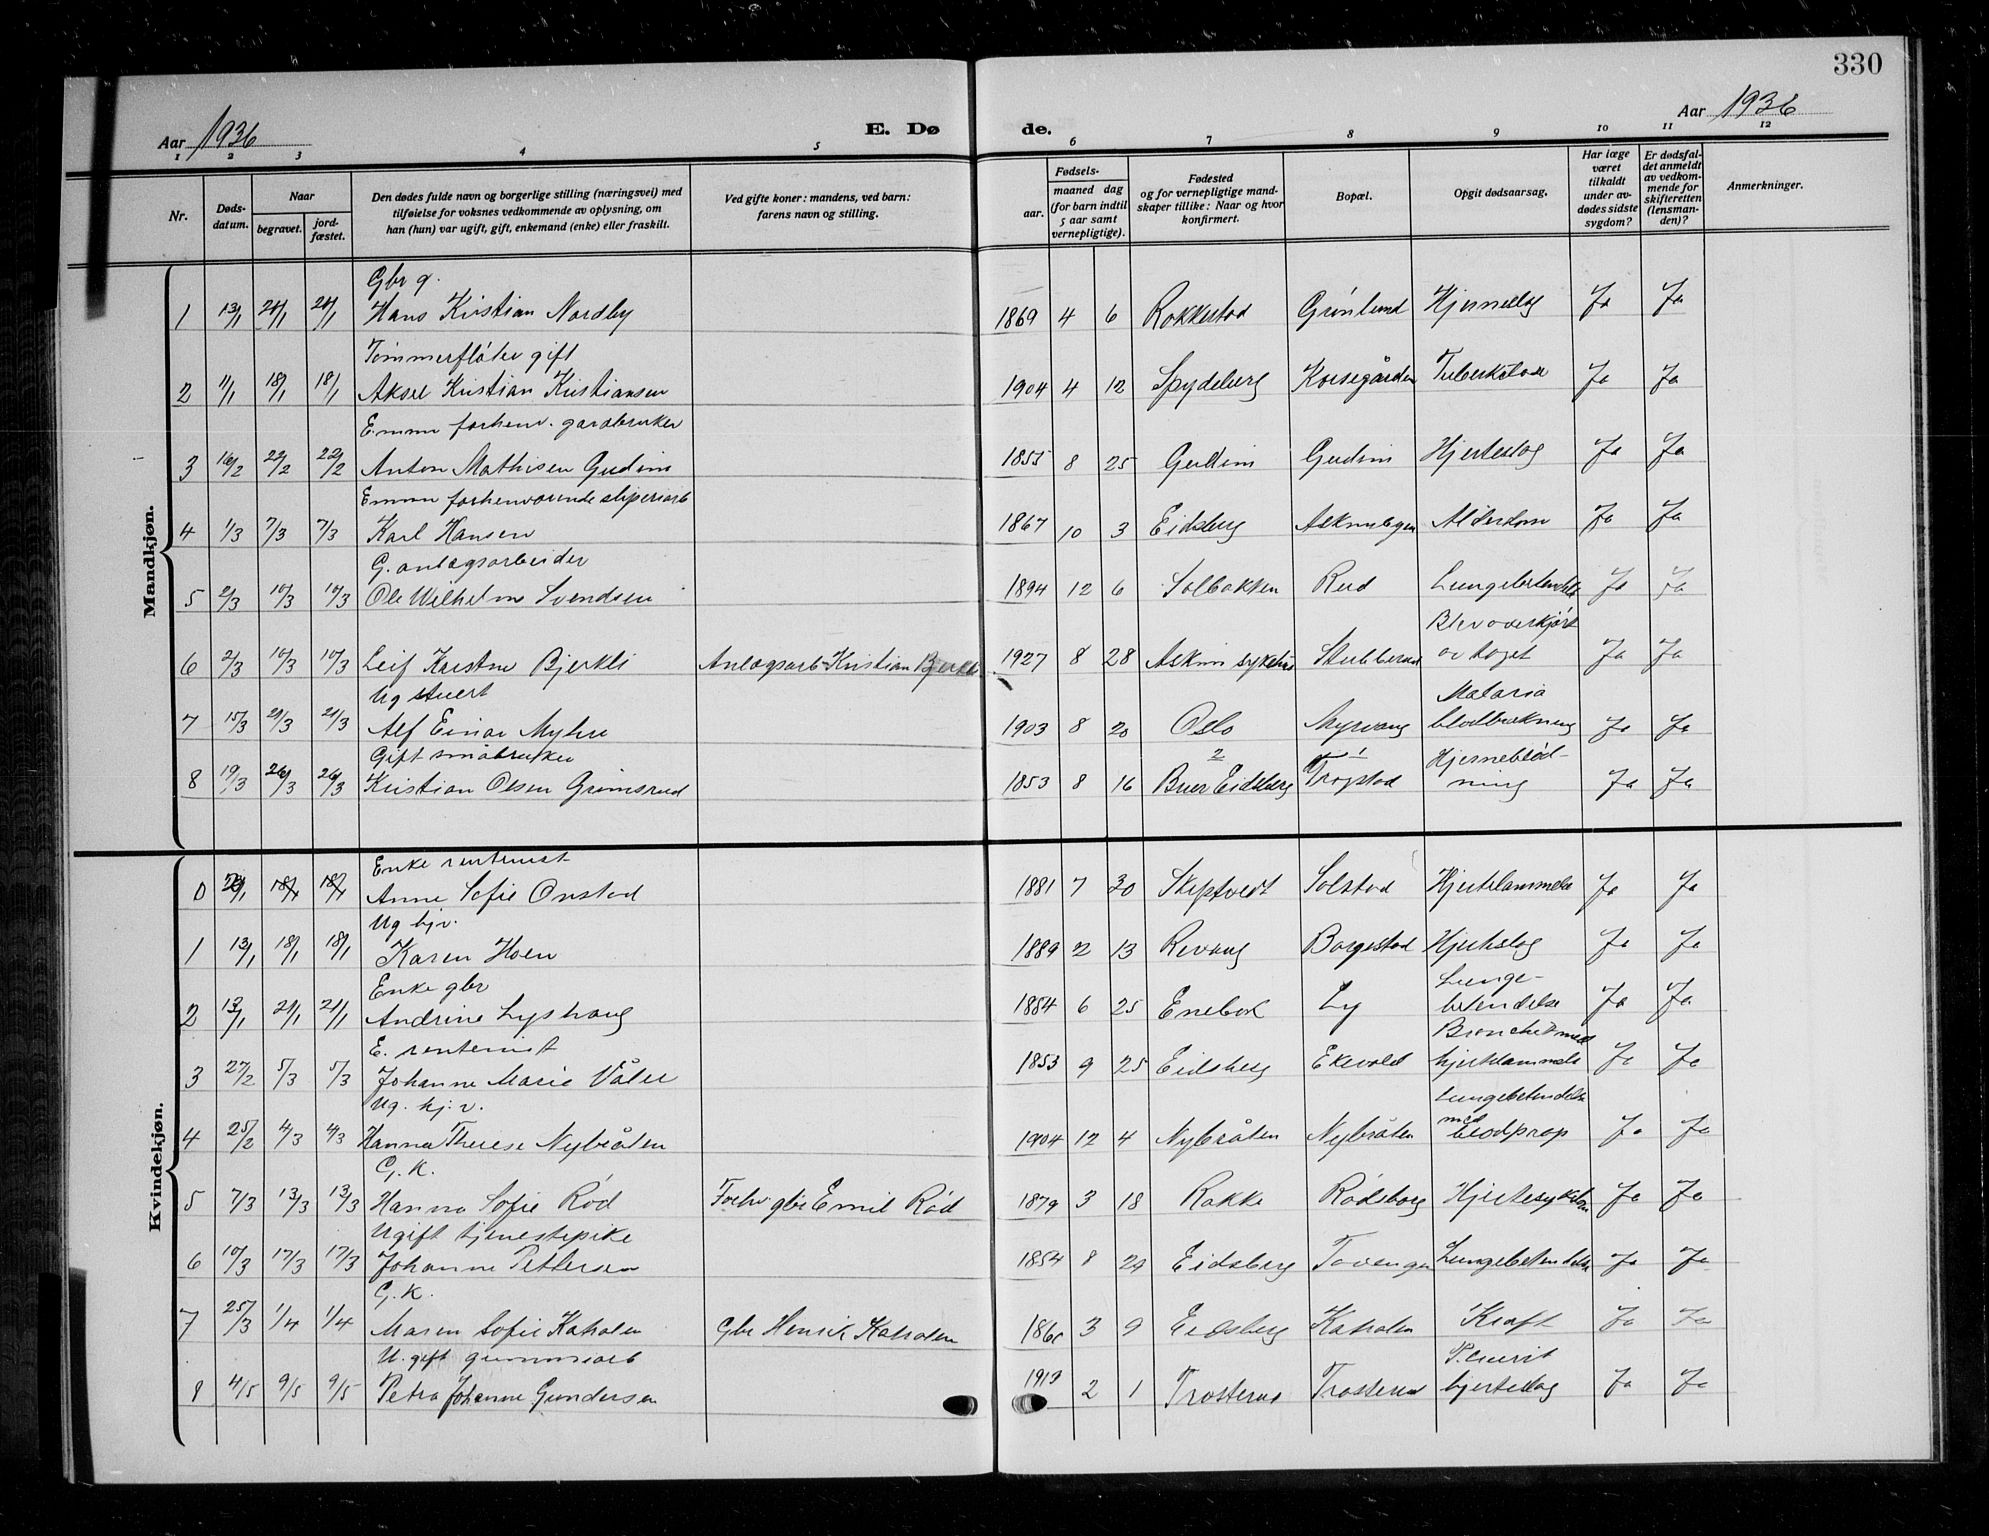 330
Aar 1936 E. Dø de. Aar 1936
1 2 3 4 5 6 7 8 9 10 11 12
Nr. Døds-datum. Naar begravet. jord-fæstet. Den dødes fulde navn og borgerlige stilling (næringsvei) med tilføielse for voksnes vedkommende av oplysning, om han (hun) var ugift, gift, enkemand (enke) eller fraskilt. Ved gifte koner: mandens, ved barn: farens navn og stilling. Fødsels- aar. maaned dag (for barn indtil 5 aar samt vernepligtige). Fødested og for vernepligtige mandskaper tillike: Naar og hvor konfirmert. Bopæl. Opgit dødsaarsag. Har læge været tilkaldt under avdødes sidste sygdom? Er dødsfaldet anmeldt av vedkommende for skifteretten (lensmanden)? Anmerkninger.
Mandkjøn.
Gbr g.
1 13/1 24/1 24/1 Hans Kristian Nordby 1869 4 6 Rakkestad Grönlund Hjerneslag Ja Ja
Tömmerflöter gift
2 11/1 18/1 18/1 Aksel Kristian Kristiansen 1904 4 12 Spydeberg Korsegården Tuberkulose Ja Ja
Emm forhenv. gardbruker
3 16/2 22/2 22/2 Anton Mathisen Gudim 1855 8 25 Gudim Gudim Hjerteslag Ja Ja
Emm forhenværende sliperiarb
4 1/3 7/3 7/3 Karl Hansen 1867 10 3 Eidsberg Askimbyen Alderdom Ja Ja
G. anlægsarbeider
5 2/3 10/3 10/3 Ole Wilhelm Svendsen 1894 12 6 Solbakken Rud Lungebetendelse Ja Ja
Blev overkjört
6 2/3 10/3 10/3 Leif Karstne Bjerkli Anlægsarb Kristian Bjerkli 1927 8 28 Askim sykehus Stubberud av toget Ja Ja
Ug stuert Malaria
7 15/3 21/3 21/3 Alf Einar Myhre 1903 8 20 Oslo Myrvang blodbrækning Ja Ja
Gift småbruker 2 1 Hjerneblöd-
8 19/3 26/3 26/3 Kristian Olsen Grimsrud 1853 8 16 Buer Eidsberg Trøgstad ning Ja Ja
Kvindekjøn.
Enke rentenist
0 18/1 18/1 Anne Sofie Onstad 1881 7 30 Skiptvedt Solstad Hjertelammelse Ja Ja
Ug hjv.
1 13/1 18/1 18/1 Karen Hoen 1889 2 13 Revaug Borgestad Hjerteslag Ja Ja
Enke gbr Lunge-
2 13/1 21/1 21/1 Andrine Lyshaug 1854 6 25 Enebak Ly betendelse Ja Ja
E. rentenist Bronchit med
3 27/2 5/3 5/3 Johanne Marie Våler 1853 9 25 Eidsberg Ekevold hjertelammelse Ja Ja
Ug. hj. v. Lungebetendelse med
4 25/2 4/3 4/3 Hanna Therese Nybråten 1904 12 4 Nybråten Nybråten blodprop Ja Ja
G. K.
5 7/3 13/3 13/3 Hanna Sofie Rød Forhv gbr Emil Rød 1879 3 18 Rakke Rødsborg Hjertesykdom Ja Ja
Ugift tjenestepike
6 10/3 17/3 17/3 Johanne Pettersen 1854 8 29 Eidsberg Tovengen Lungebetendelse Ja Ja
G. K.
7 25/3 1/4 1/4 Maren Sofie Katralen Gbr Henrik Katralen 3 9 Eidsberg Katralen Kræft Ja Ja
U. gift gummiarb Pleurit
8 4/5 9/5 9/5 Petra Johanne Gundersen 1919 2 1 Trosterud Trosterud hjerteslag Ja Ja